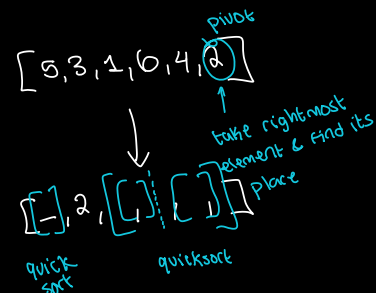 pivot
[5,3,1,6,4,2]
take rightmost
element & find its
place
[[_],2,[[ , ] [ , ]]]
quick
sort
quicksort